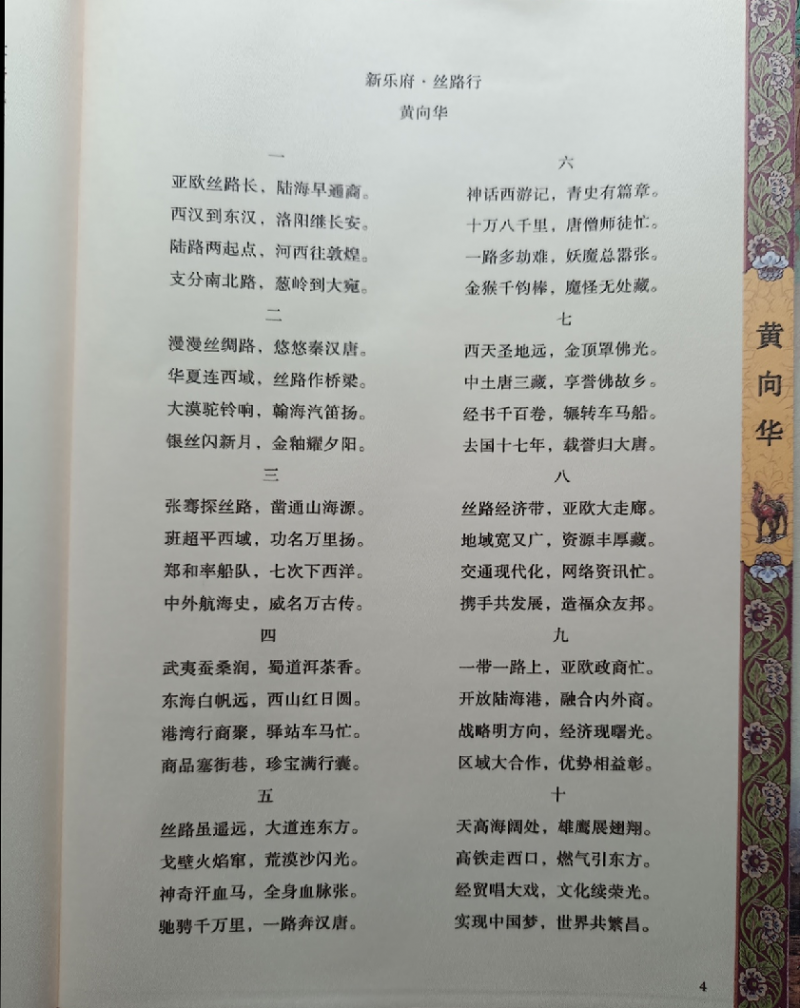 新乐府·丝路行
黄向华
一
亚欧丝路长，陆海早通商。
西汉到东汉，洛阳继长安。
陆路两起点，河西往敦煌。
支分南北路，葱岭到大宛。
二
漫漫丝绸路，悠悠秦汉唐。
华夏连西域，丝路作桥梁。
大漠驼铃响，翰海汽笛扬。
银丝闪新月，金釉耀夕阳。
三
张骞探丝路，凿通山海源。
班超平西域，功名万里扬。
郑和率船队，七次下西洋。
中外航海史，威名万古传。
四
武夷蚕桑润，蜀道洱茶香。
东海白帆远，西山红日圆。
港湾行商聚，驿站车马忙。
商品塞街巷，珍宝满行囊。
五
丝路虽遥远，大道连东方。
戈壁火焰窜，荒漠沙闪光。
神奇汗血马，全身血脉张。
驰骋千万里，一路奔汉唐。
六
神话西游记，青史有篇章。
十万八千里，唐僧师徒忙。
一路多劫难，妖魔总嚣张。
金猴千钧棒，魔怪无处藏。
七
西天圣地远，金顶罩佛光。
中土唐三藏，享誉佛故乡。
经书千百卷，辗转车马船。
去国十七年，载誉归大唐。
八
丝路经济带，亚欧大走廊。
地域宽又广，资源丰厚藏。
交通现代化，网络资讯忙。
携手共发展，造福众友邦。
九
一带一路上，亚欧政商忙。
开放陆海港，融合内外商。
战略明方向，经济现曙光。
区域大合作，优势相益彰。
十
天高海阔处，雄鹰展翅翔。
高铁走西口，燃气引东方。
经贸唱大戏，文化续荣光。
实现中国梦，世界共繁昌。
黄向华
4